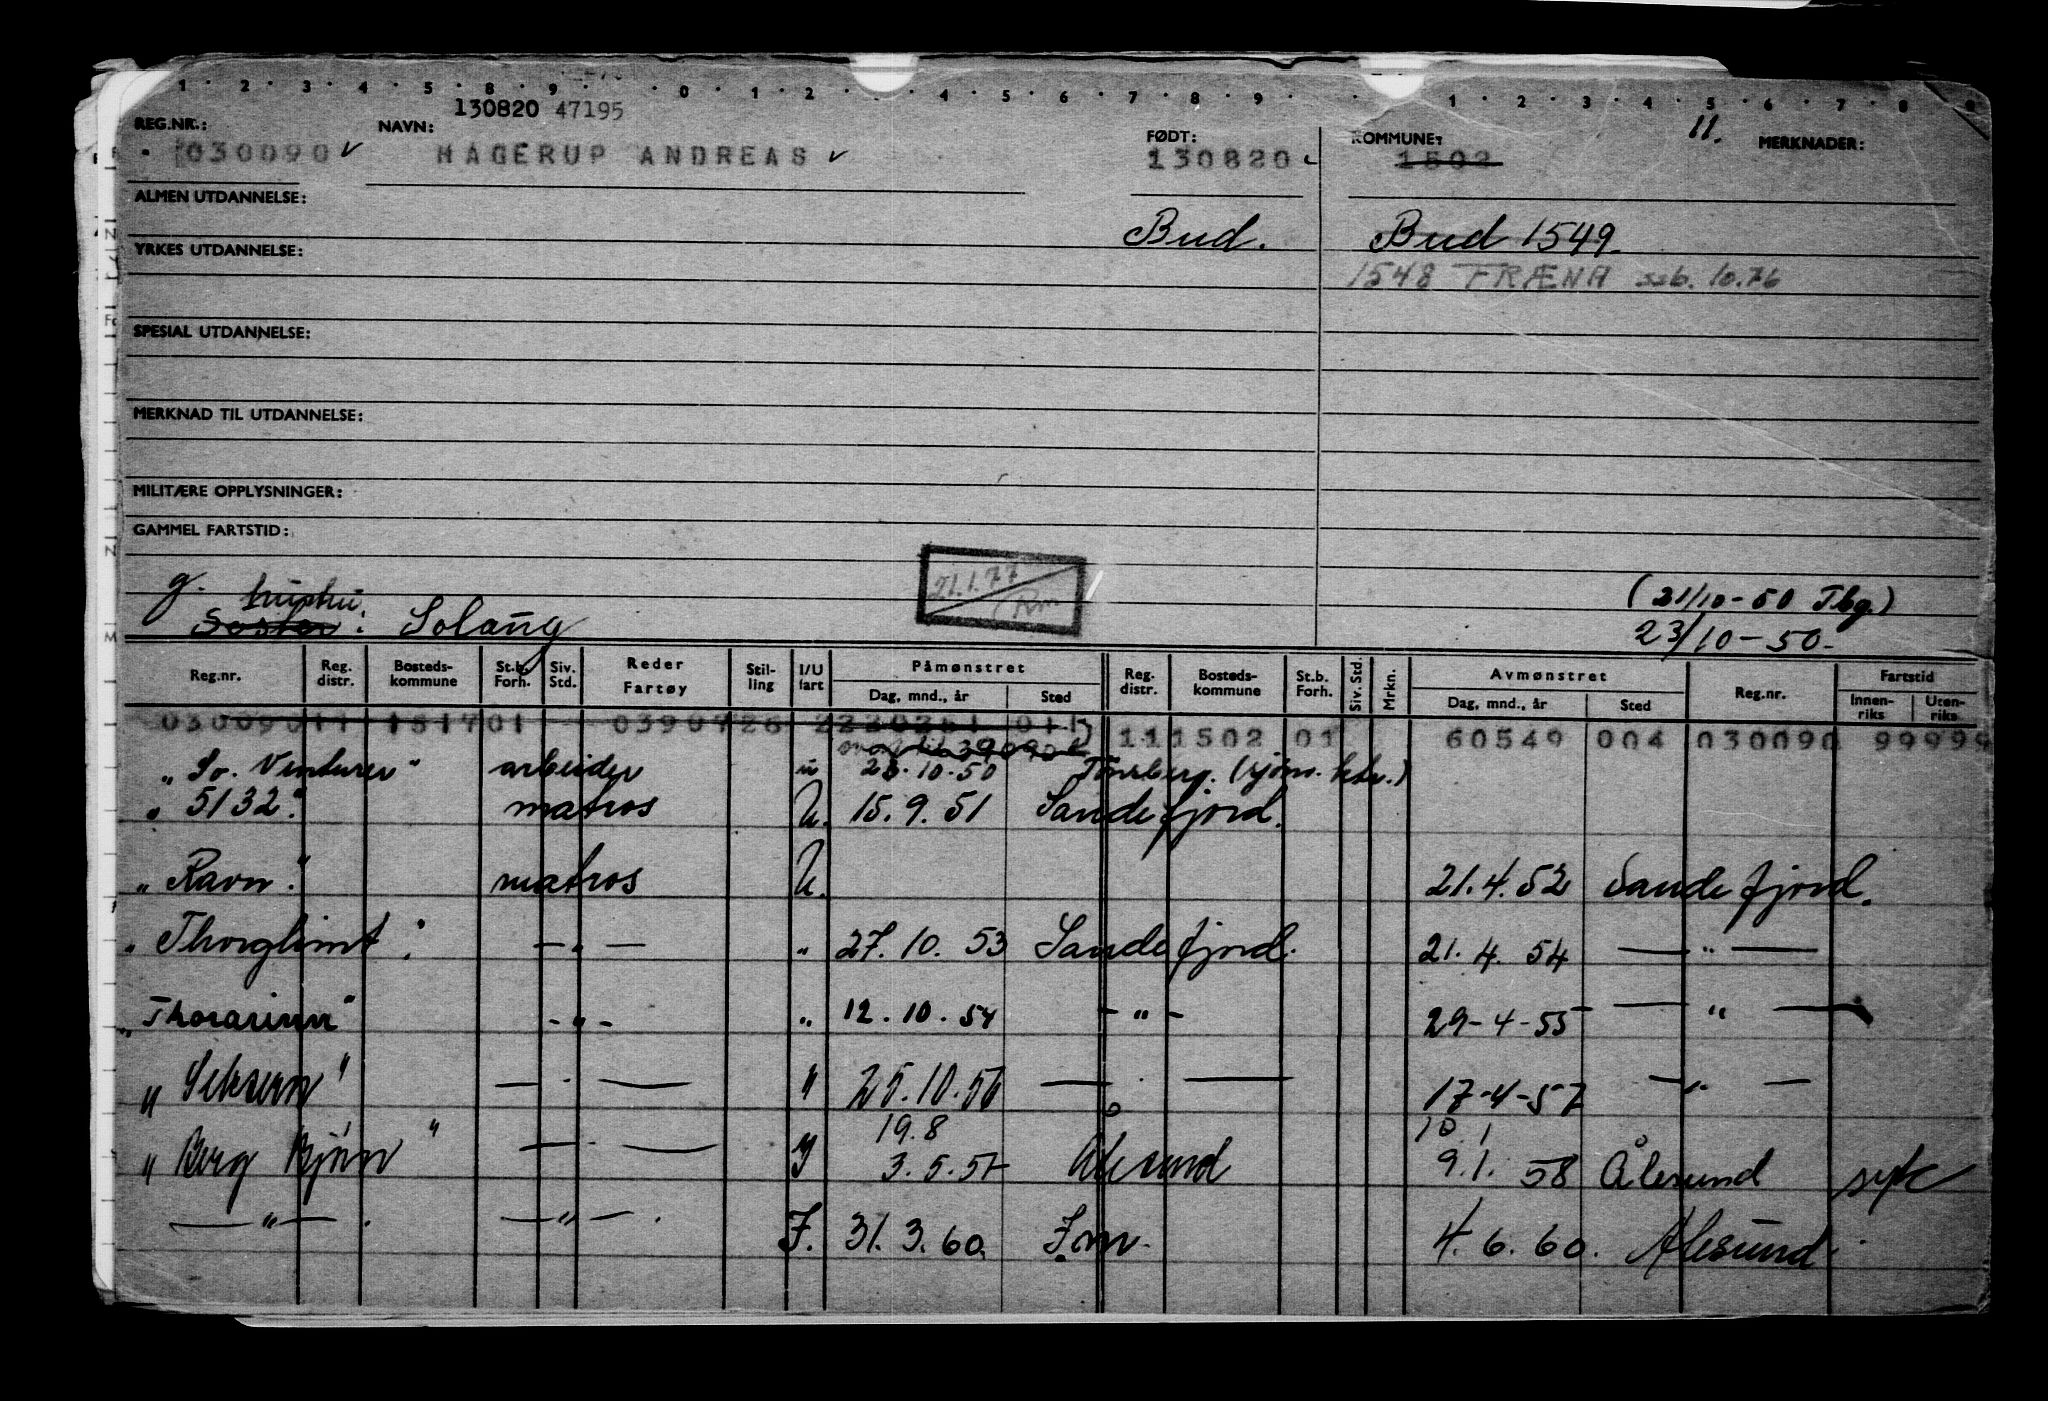 1 · 2 · 3 · 4 · 5 · 8 · 9 · · 0 · 1 · 2 · · 4 · 5 · 6 · 7 · 8 · 9 · · 1 · 2 · 3 · 4 · 5 · 6 · 7 · 8 · 9
130820 47195
REG.NR.: NAVN: FØDT: KOMMUNE: 11. MERKNADER:
030090 HAGERUP ANDREAS 130820 1502
ALMEN UTDANNELSE:
Bud. Bud 1549
YRKES UTDANNELSE:
1548 FRÆNA ssb. 10.76
SPESIAL UTDANNELSE:
MERKNAD TIL UTDANNELSE:
MILITÆRE OPPLYSNINGER:
GAMMEL FARTSTID:
21.1.77
g. hustru. (21/10-50 Tbg.)
Søster: Solaug 23/10-50.
Reg.nr. Reg. distr. Bosteds- kommune St.b. Forh. Siv. Std. Reder Fartøy Stil- ling I/U fart Påmønstret Dag, mnd., år Sted Reg. distr. Bosteds- kommune St.b. Forh. Siv. Std. Mrkn. Avmønstret Dag, mnd., år Sted Reg.nr. Fartstid Innen- riks Uten- riks
030090 11 151701 0390726 2 011
111502 01 60549 004 030090 99999
"So. Venturer" arbeider u 23.10.50 Tønsberg. (sjøm. ktr.)
"5132" matros U. 15.9.51 Sandefjord.
"Ravn." matros U. 21.4.52 Sandefjord.
"Thorglimt" — " — " 27.10.53 Sandefjord. 21.4.54 — " —
"Thorarinn" - " - " 12.10.54 - " - 29-4-55 — " —
"Seksern" — " — " 25.10.56 — " — 17-4-57 — " —
19.8 10.1
"Berg Bjørn" — " — I 3.5.57 Ålesund 9.1.58 Ålesund syk
— " — . — " — . I. 31.3.60. 4.6.60. Ålesund.